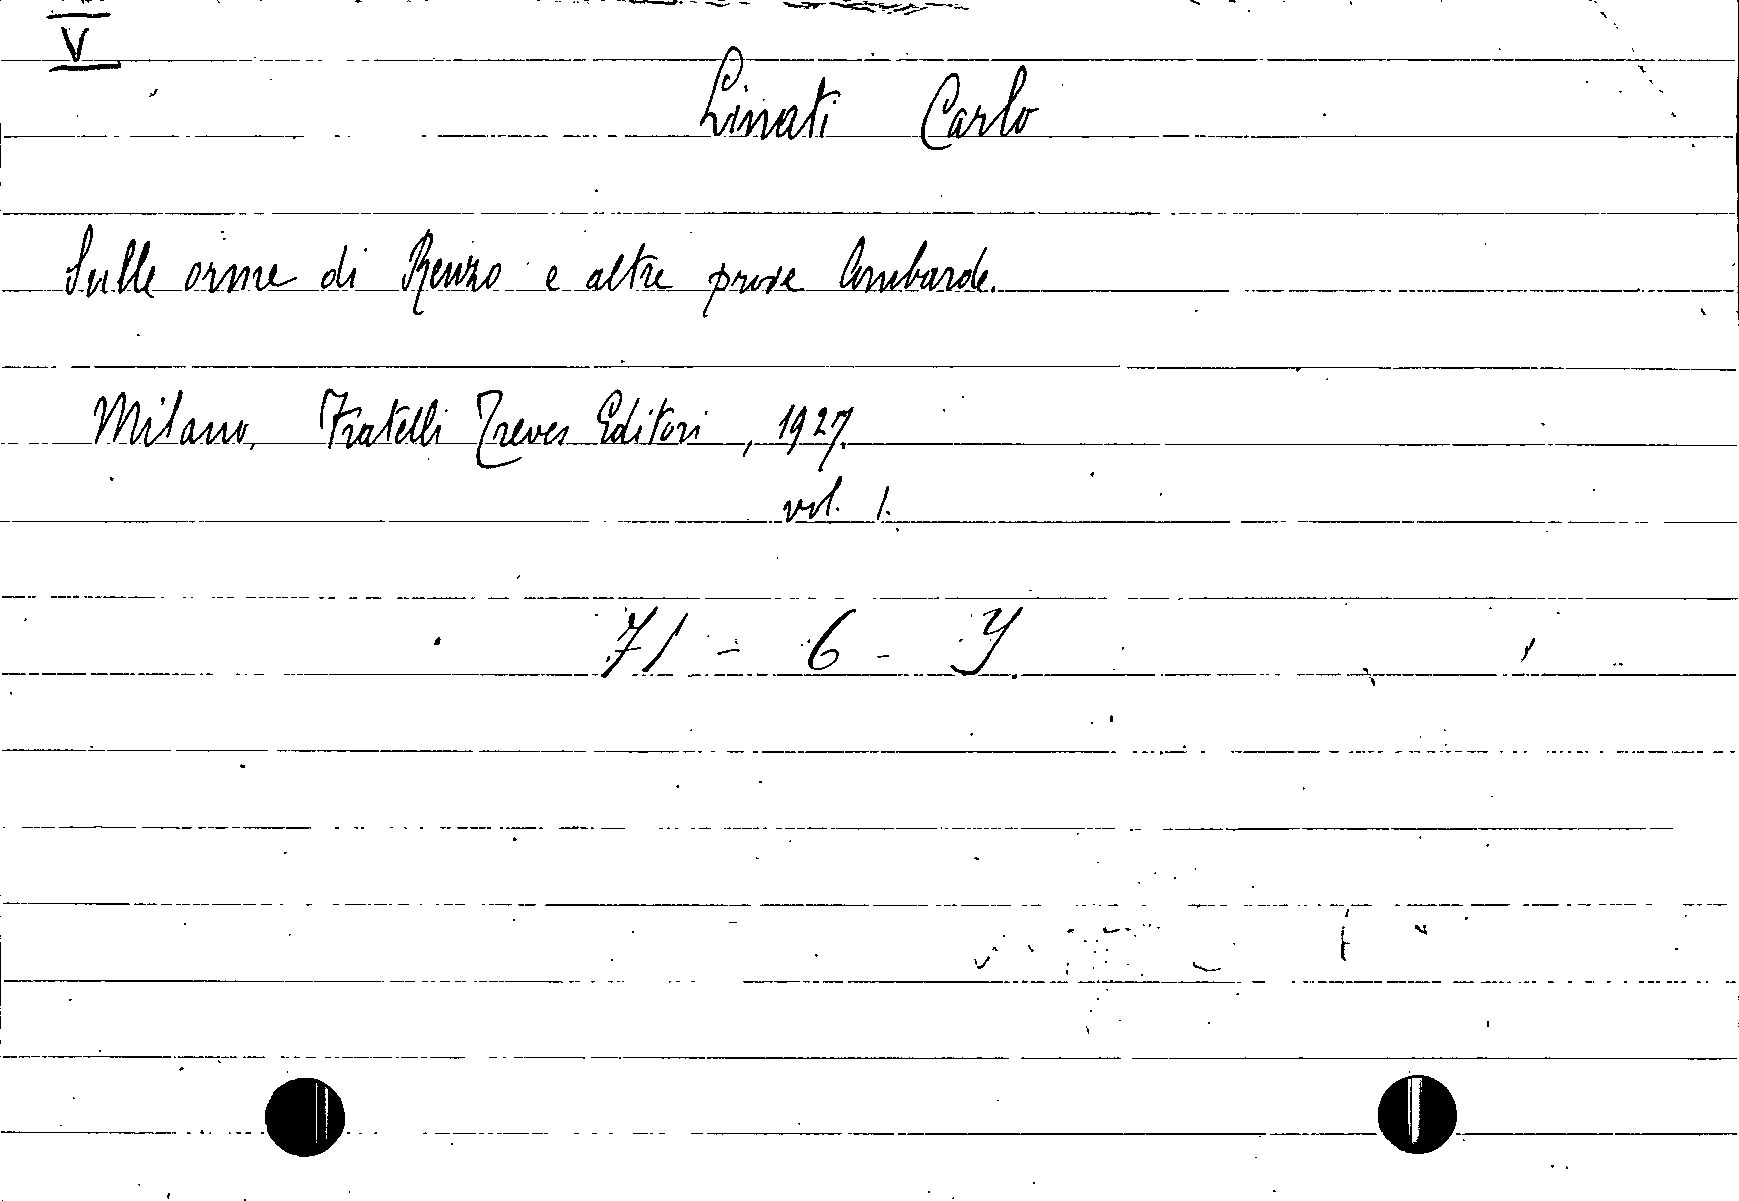 V
Linati Carlo
Sulle orme di Renzo e altre prose lombarde.
Milano, Fratelli Treves Editori, 1927.
vol. 1.
71 - 6 - Y.